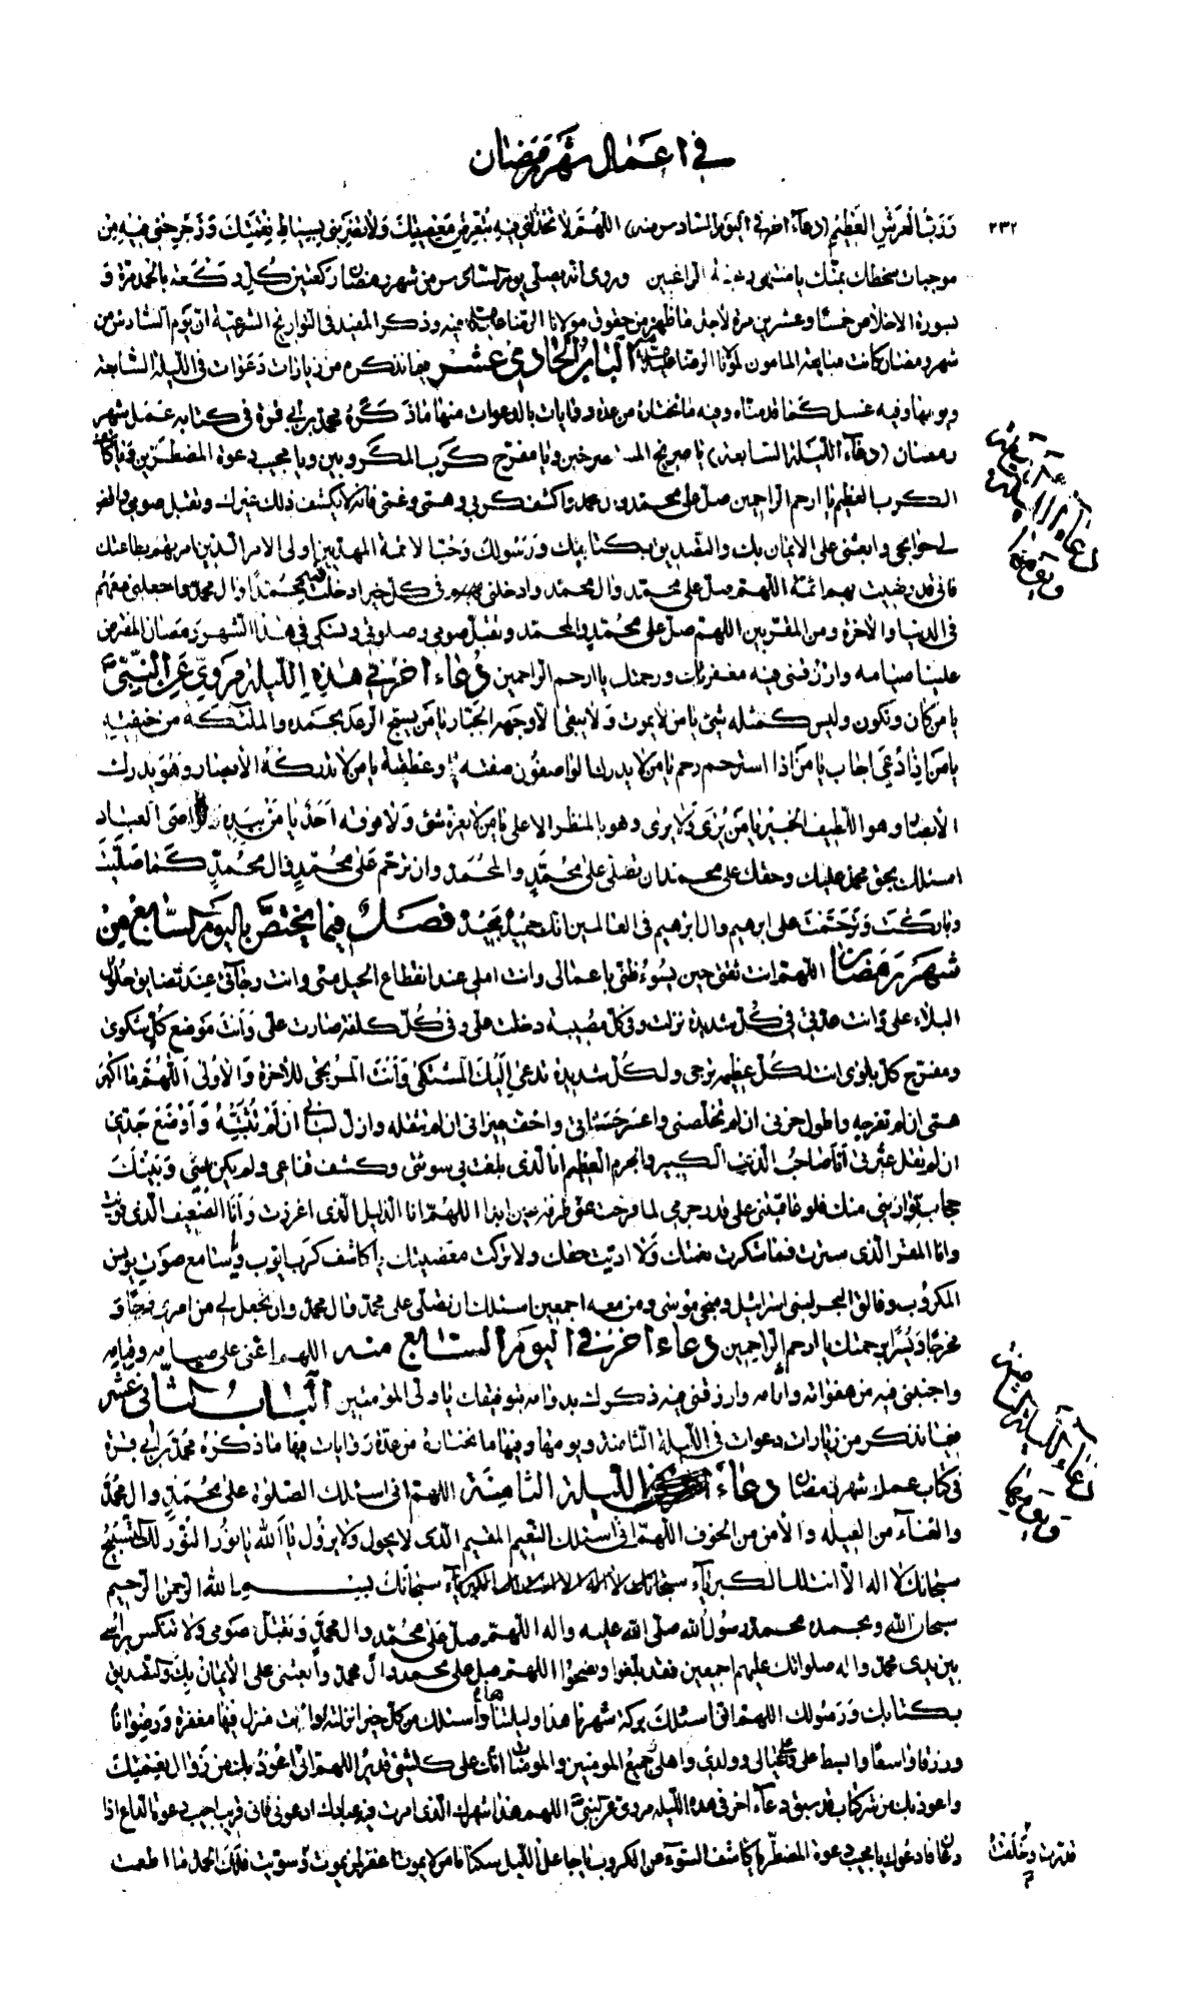 في اعمال شهر رمضان
٢٣٢
وَرَبُّ الْعَرْشِ الْعَظِيْمِ (دعآء اخر في اليوم السادس منه) اللهُمَّ لا تخذلني فيهِ بتعرض معصيتك ولا تضربني بسياط نقمتك وزحزحني فيه من
موجبات سخطك بمنّك يا منتهى رغبة الراغبين وروى انه يصلى يوم السادس من شهر رمضان ركعتين كل ركعة بالحمد مرة و
بسورة الاخلاص خمسا وعشرين مرة لاجل ما ظهر من حقوق مولانا الرضا فيه وذكر المفيد في التواريخ الشرعية ان يوم السادس من
شهر رمضان كانت مبايعة المامون لمولانا الرضا الباب الحادي عشر فيما نذكره من زيارات دعوات في الليلة السابعة
ويومها وفيه غسل كما قدمناه وفيه ما نختاره من عدة روايات بالدعوات منها ما ذكره محمد بن ابي قرة في كتابه عمل شهر
رمضان (دعآء الليلة السابعة) يا صريخ المستصرخين ويا مفرج كرب المكروبين ويا مجيب دعوة المضطرين ويا كاشف
الكرب العظيم يا ارحم الراحمين صل على محمد وال محمد واكشف كربي وهمي وغمي فانه لا يكشف ذلك غيرك وتقبل صومي واقض
لي حوائجي وابعثني على الايمان بك والتصديق بكتابك ورسولك وحب الائمة المهديين اولى الامر الذين امرت بطاعتهم
فاني قد رضيت بهم ائمة اللهم صل على محمد وال محمد وادخلني في كل خير ادخلت فيه محمدا وال محمد واجعلني معهم
في الدنيا والاخرة ومن المقربين اللهم صل على محمد وال محمد وتقبل صومي وصلوتي ونسكي في هذا الشهر رمضان المفترض
علينا صيامه وارزقني فيه مغفرتك ورحمتك يا ارحم الراحمين دعاء اخر في هذه الليلة مروي عن النبي
يا من كان ويكون وليس كمثله شئ يا من لا يموت ولا يبقى الا وجهه الجبار يا من يسبح الرعد بحمده والملئكة من خيفته
يا من اذا دُعي اجاب يا من اذا استرحم رحم يا من لا يدرك الواصفون صفته وعظمته يا من لا تدركه الابصار وهو يدرك
الابصار وهو اللطيف الخبير يا من يَرى ولا يُرى وهو بالمنظر الاعلى يا من لا يعزه شئ ولا يفوقه احد يا من بيده نواصى العباد
اسئلك بحق محمد عليك وحقك على محمد ان تصلي على محمد وال محمد وان ترحم على محمد وال محمد كما صليت
وباركت وترحمت على ابرهيم وال ابرهيم في العالمين انك حميد مجيد فصل فيما يختص باليوم السابع من
شهر رمضان اللهم انت ثقتي حين يسوء ظني باعمالي وانت املي عند انقطاع الحيل مني وانت رجآئي عند تضايق حلول
البلاء على وانت عدتي في كل شديدة نزلت وفي كل مصيبة دخلت علي وفي كل كلفة صارت علي وانت موضع كل شكوى
ومفرج كل بلوى انت لكل عظيم ترجى ولكل شديدة تدعى اليك المشتكى وانت المرتجى للاخرة والاولى اللهم ما اكبر
همي ان لم تفرجه واطول حزني ان لم تخلصني واعسر حسناتي واخف ميزاني ان لم تثقله وازل لساني ان لم تثبته واوضع جدي
ان لم تقل عثرتي انا صاحب الذنب الكبير والجرم العظيم انا الذي بلغت بي سوئتي وكشف قناعي ولم يكن بيني وبينك
حجاب يواريني منك فلو عاقبتني على قدر جرمي لما فرجت عني طرفة عين ابدا اللهم انا الذليل الذي اعززت وانا الضعيف الذي قويت
وانا المقر الذي سترت فما شكرت نعمتك ولا اديت حقك ولا تركت معصيتك يا كاشف كرب ايوب ويا سامع صوت يونس
المكروب وفالق البحر لبني اسرائيل ومنجي موسى ومن معه اجمعين اسئلك ان تصلي على محمد وال محمد وان تجعل لي من امري فرجا و
مخرجا ويسرا برحمتك يا ارحم الراحمين دعاء اخر في اليوم السابع منه اللهم اعني على صيامه وقيامه
واجنبني فيه من هفواته واثامه وارزقني فيه ذكرك بدوامه بتوفيقك يا ولي المؤمنين الباب الثاني عشر
فيما نذكر من زيارات دعوات في الليلة الثامنة ويومها وفيها ما نختاره من عدة روايات فيها ما ذكره محمد بن ابي قرة
في كتاب عمل شهر رمضان دعاء الليلة الثامنة اللهم اني اسئلك الصلوة على محمد وال محمد
والغنآء من العيلة والامن من الخوف اللهم اني اسئلك النعيم المقيم الذي لا يحول ولا يزول يا الله يا نور النور لك التسبيح
سبحانك لا اله الا انت لك الكبريآء سبحانك بسم الله الرحمن الرحيم
سبحان الله وبحمده محمد رسول الله صلى الله عليه واله اللهم صل على محمد وال محمد وتقبل صومي ولا تنكس برأسي
بين يدي محمد واله صلواتك عليهم اجمعين فقد بلغوا ونصحوا اللهم صل على محمد وال محمد وابعثني على الايمان بك والتصديق
بكتابك ورسولك اللهم اني اسئلك بركة شهرنا هذا وليلتنا هذه واسئلك من كل خير انزلته او انت منزل فيها مغفرة ورضوانا
ورزقا واسعا وابسط علي وعلى عيالي وولدي واهلي وجميع المومنين والمومنات انك على كل شئ قدير اللهم اني اعوذ بك من زوال نعمتك
واعوذ بك من شر كتاب قد سبق دعآء اخر في هذه الليلة مروي عن النبي اللهم هذا شهرك الذي امرت فيه عبادك ادعوني فاني قريب اجيب دعوة الداع اذا
دعان فادعوك يا مجيب دعوة المضطر يا كاشف السوء عن المكروب يا جاعل الليل سكنا يا من لا يموت اغفر لمن يموت وسويت فلك الحمد ما اطعمت
دعاء الليلة السابعة
ويومها
دعاء الليلة الثامنة
ويومها
قدرت وخلقت